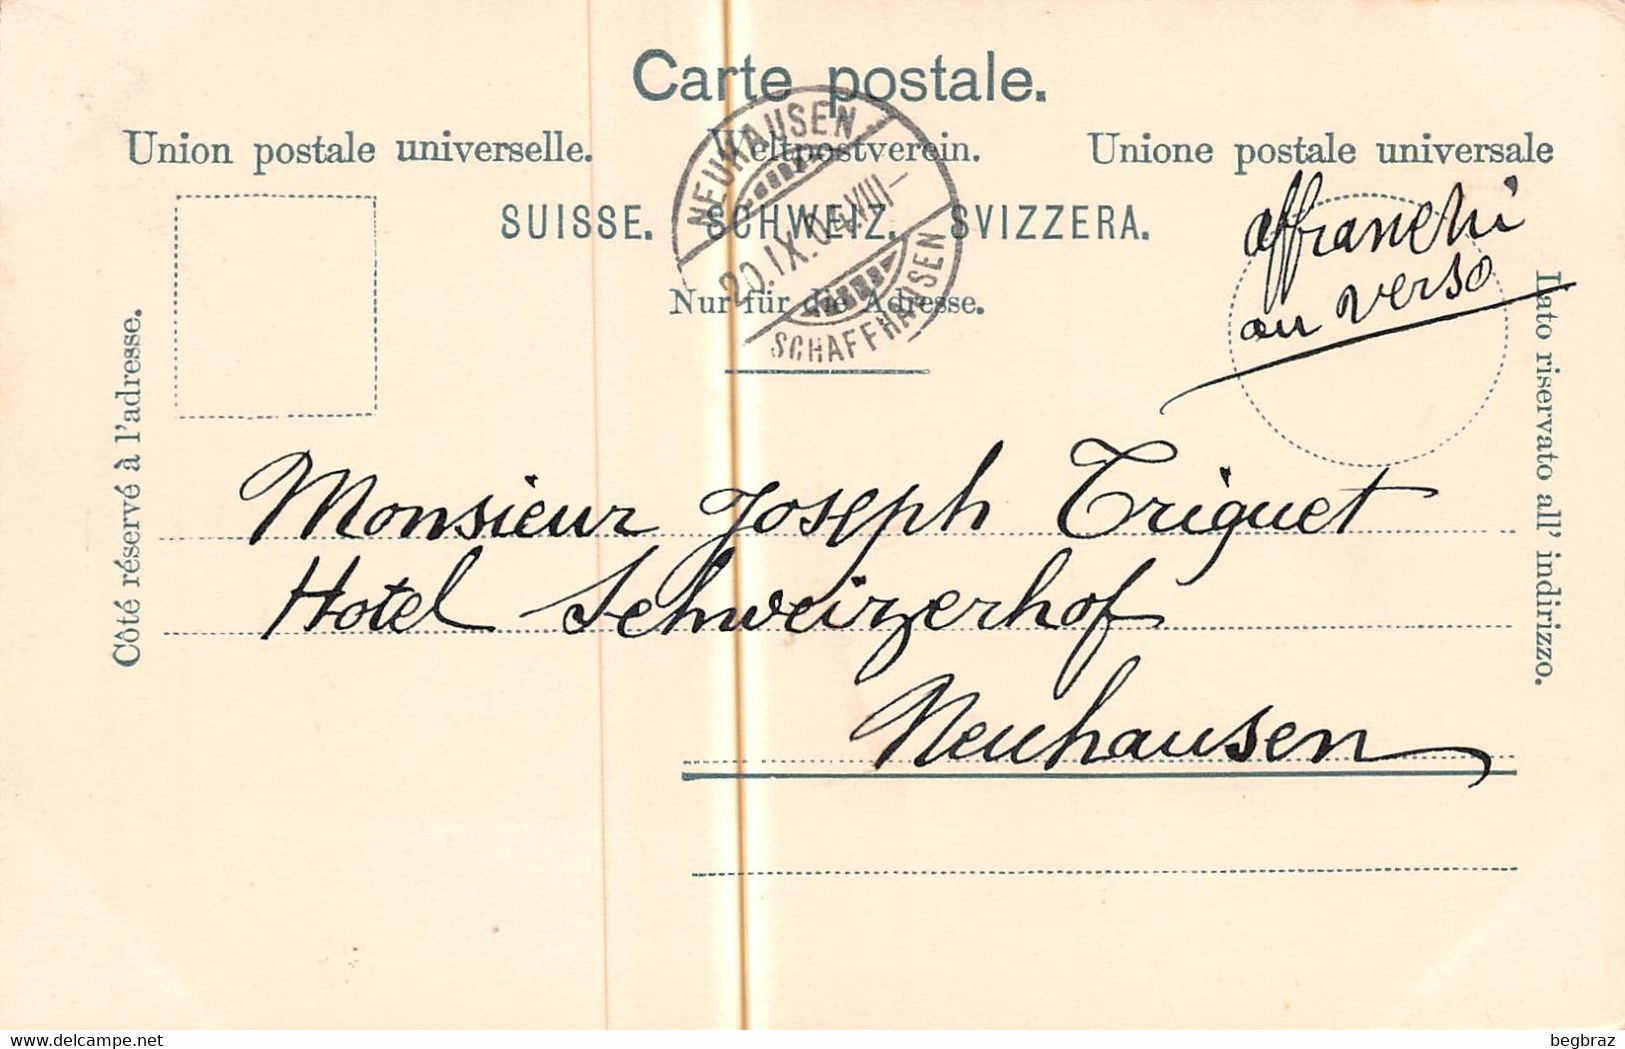 Carte postale.
Union postale universelle. Weltpostverein. Unione postale universale
SUISSE. SCHWEIZ. SVIZZERA.
Nur für die Adresse.
NEUHAUSEN
20.IX.04.VIII–
SCHAFFHAUSEN
affranchi
au verso
Côté réservé à l'adresse.
Lato riservato all' indirizzo.
Monsieur Joseph Triguet
Hotel Schweizerhof
Neuhausen
delcampe.net
begbraz